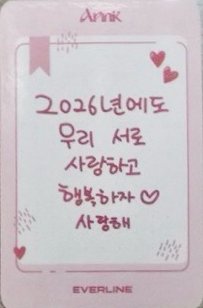 Apink
2026년에도
우리 서로
사랑하고
행복하자♡
사랑해
EVERLINE